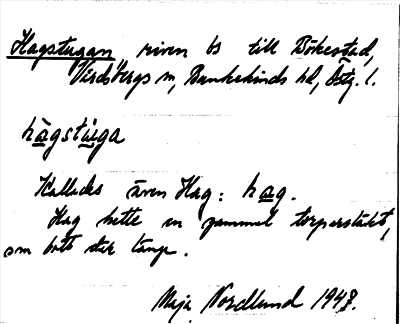 Hagstugan riven bs till Bökestad,
Vårdsbergs sn, Bankekinds hd, Östg. l.
hàgstùga
Kallades även Hag: hag.
Hag hette en gammal torparsläkt,
som bott där länge.
Maja Nordlund 1947.